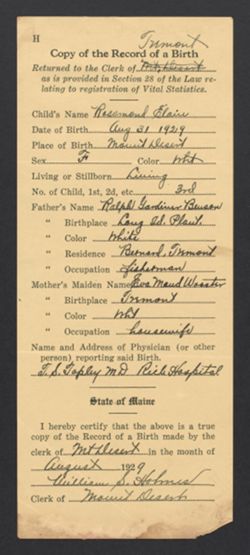 H
Tremont
Copy of the Record of a Birth
Returned to the Clerk of Mt. Desert
as is provided in Section 28 of the Law re-
lating to registration of Vital Statistics.
Child's Name Rosemond Elaine
Date of Birth Aug 31 1929
Place of Birth Mount Desert
Sex F Color Wht
Living or Stillborn Living
No. of Child, 1st, 2d, etc. 3rd
Father's Name Ralph Gardiner Benson
" Birthplace Long Id. Plant.
" Color White
" Residence Bernard, Tremont
" Occupation fisherman
Mother's Maiden Name Eva Maud Wooster
" Birthplace Tremont
" Color Wht
" Occupation housewife
Name and Address of Physician (or other
person) reporting said Birth.
T. S. Tapley MD Hospital
State of Maine
I hereby certify that the above is a true
copy of the Record of Birth made by the
clerk of Mt Desert in the month of
August 1929
William S. Holmes
Clerk of Mount Desert